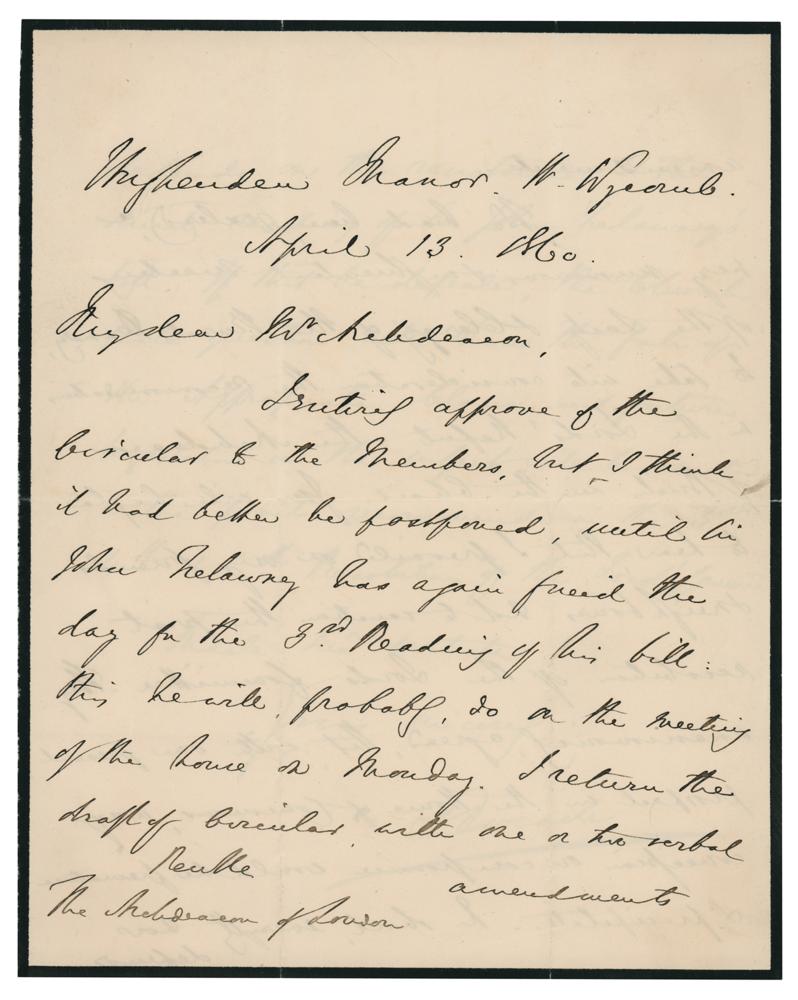 Hughenden Manor. H. Wycomb.
April 13. 1860.
My dear Mr Archdeacon,
I entirely approve of the
Circular to the Members, but I think,
it had better be postponed, until Sir
John Trelawney has again fixed the
day for the 3rd. Reading of his bill:
this he will, probably, do on the meeting
of the house on Monday. I return the
draft of Circular with one or two verbal
amendments
The Archdeacon of London